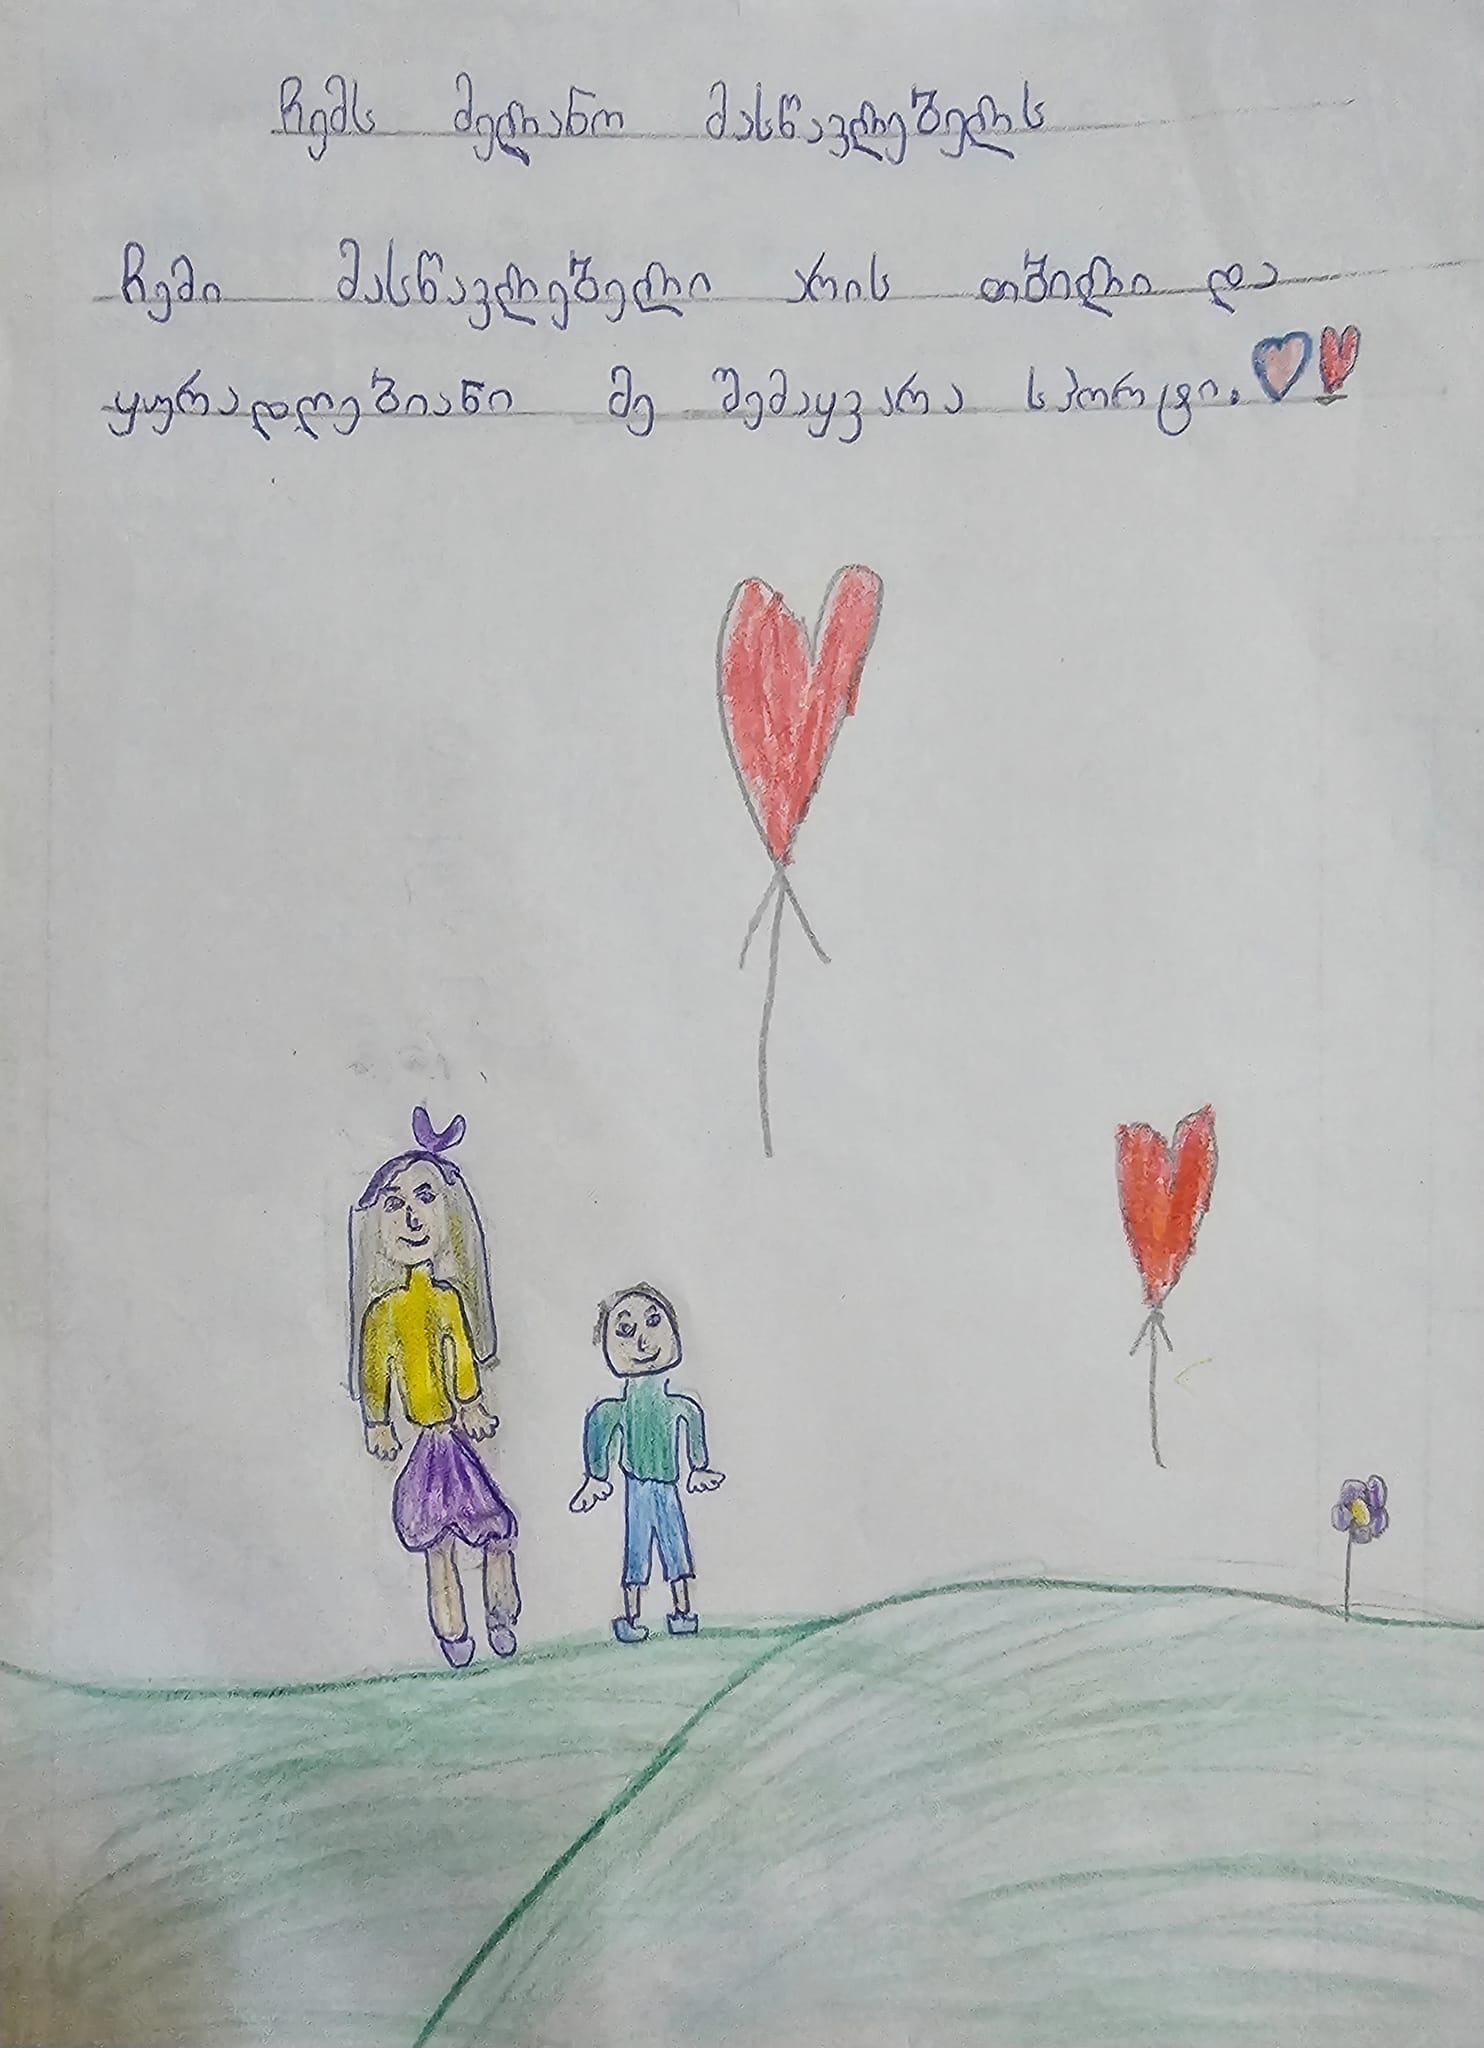 ჩემს მელანო მასწავლებელს
ჩემი მასწავლებელი არის თბილი და
ყურადღებიანი მე შემაყვარა სპორტი.